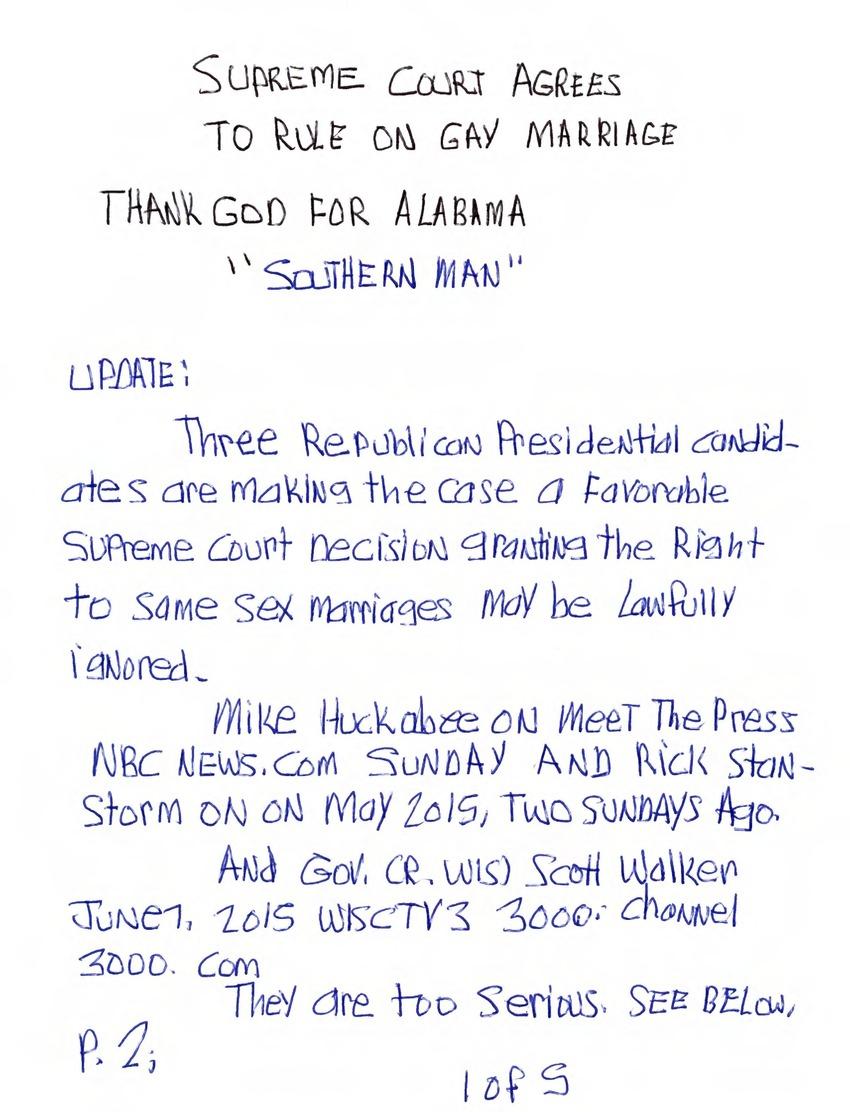 SUPREME COURT AGREES
TO RULE ON GAY MARRIAGE
THANK GOD FOR ALABAMA
"SOUTHERN MAN"
UPDATE:
Three Republican Presidential candid-
ates are making the case a Favorable
Supreme Court Decision granting the Right
to same sex marriages may be Lawfully
ignored.
Mike Huckabee ON MEET The Press
NBC NEWS.COM SUNDAY AND Rick Stan-
Storm ON ON May 2015, TWO SUNDAYS Ago.
And Gov. CR. WIS) Scott Walker
JUNE7, 2015 WISCTV3 3000: Channel
3000. Com
They are too serious. SEE BELOW,
P. 2;
1 of 5